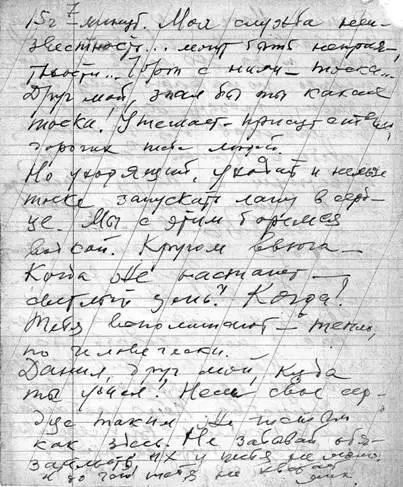 15г 7 минут. Моя служба неиз-
вестность... могут быть неприя-
тности... Чорт с ними – тоска...
Друг мой, знал бы ты какая
тоска. Утешает – присутствие
дорогих тебе людей.
Но уходящий, уходят и нельзя
тоске запускать лапу в серд-
це. Мы с этим боремся
водкой. Кругом вьюга –
Когда же настанет –
светлый день? Когда!
Тебя вспоминают – тепло,
по человечески.
Данил, друг мой, куда
ты ушел! Неси свое сер-
дце таким же чистым
как здесь. Не забывай обя-
зательств, их у тебя не мало,
и до того тебя не